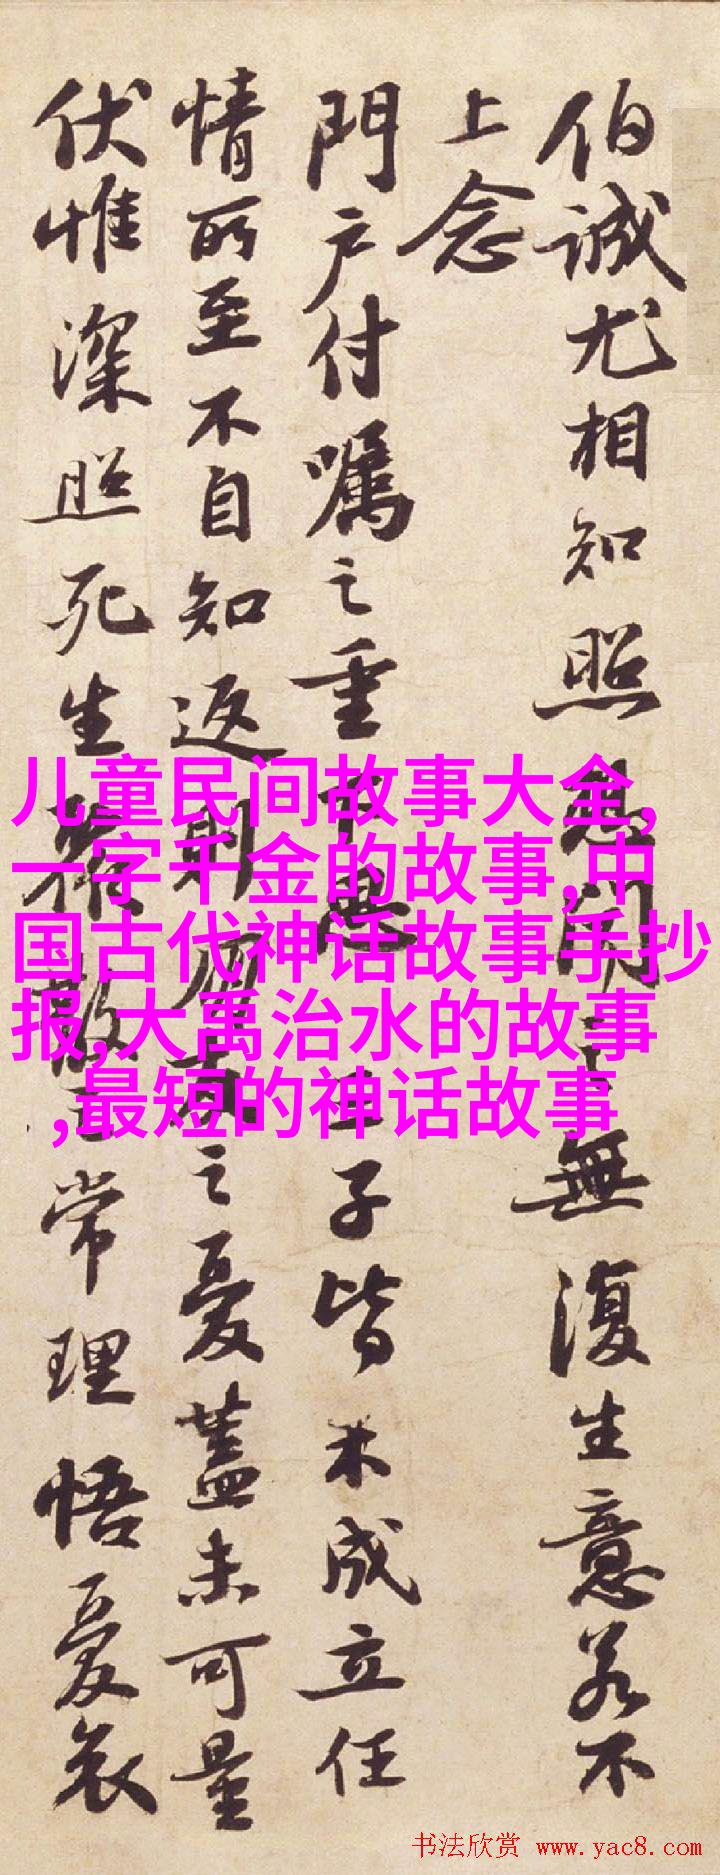 伯誠尤相知照聞之無復生意若不
上念
門户付囑之重下思三子皆未成立任
情所至不自知返則之憂蓋未可量
伏惟深照死生聚散之常理悟憂哀
儿童民间故事大全,
一字千金的故事,中
国古代神话故事手抄
报,大禹治水的故事
,最短的神话故事
书法欣赏 www.yac8.com